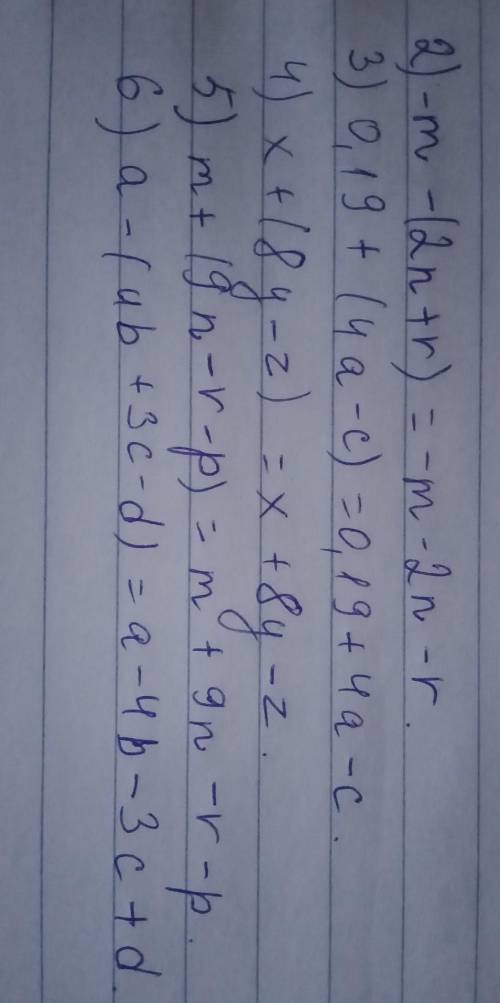 2) -m - (2n + r) = -m - 2n - r.
3) 0,19 + (4a - c) = 0,19 + 4a - c.
4) x + (8y - z) = x + 8y - z.
5) m + (9n - r - p) = m + 9n - r - p.
6) a - (4b + 3c - d) = a - 4b - 3c + d.